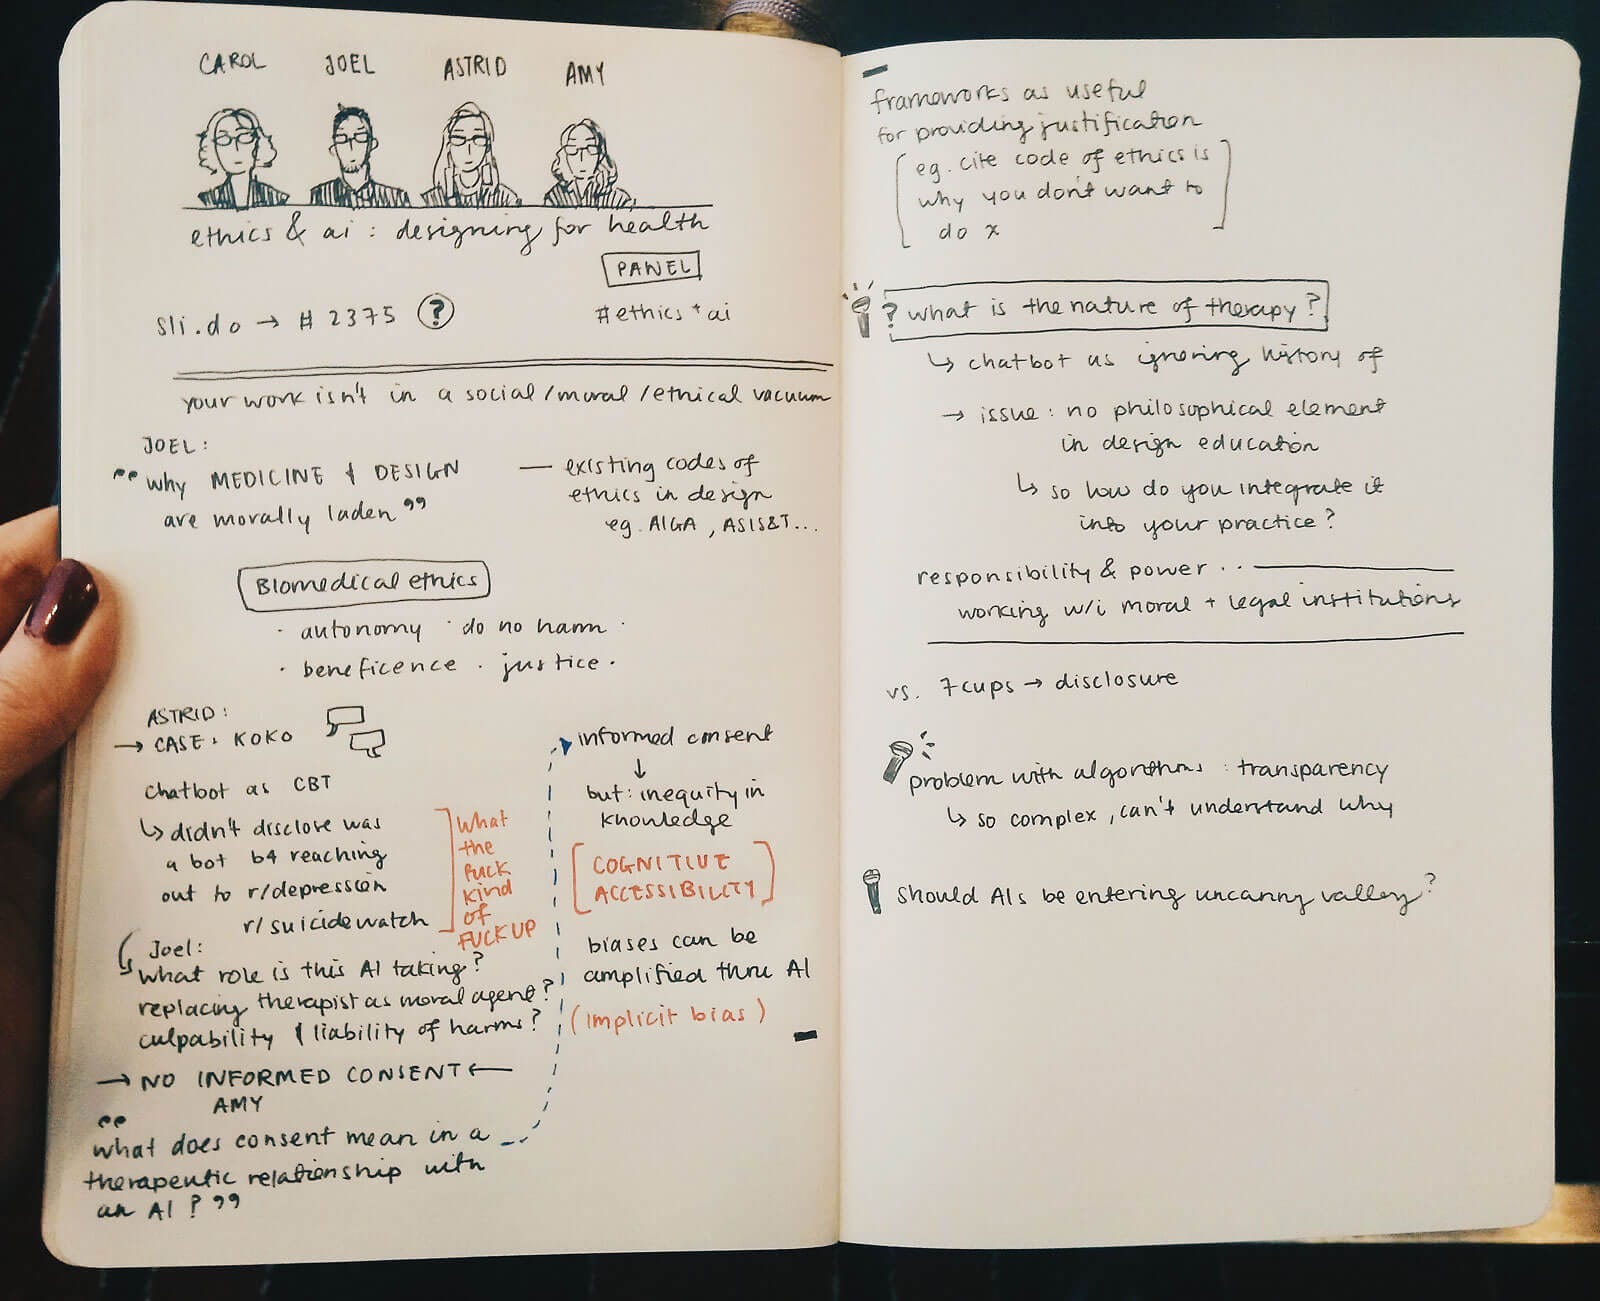 CAROL JOEL ASTRID AMY
ethics & ai : designing for health
PANEL
sli.do → # 2375 ?
#ethics+ai
your work isn't in a social/moral/ethical vacuum
JOEL:
“why MEDICINE & DESIGN
are morally laden”
— existing codes of
ethics in design
eg. AIGA, ASIS&T...
Biomedical ethics
· autonomy · do no harm ·
· beneficence · justice ·
ASTRID:
→ CASE: KOKO
chatbot as CBT
↳ didn't disclose was
a bot b4 reaching
out to r/depression
r/suicidewatch
what
the
fuck
kind
of
FUCKUP
Joel:
what role is this AI taking?
replacing therapist as moral agent?
culpability & liability of harms?
→ NO INFORMED CONSENT ←
AMY
“what does consent mean in a
therapeutic relationship with
an AI?”
informed consent
↓
but: inequity in
knowledge
[COGNITIVE
ACCESSIBILITY]
biases can be
amplified thru AI
(implicit bias)
frameworks as useful
for providing justification
[eg. cite code of ethics is
why you don't want to
do x]
? what is the nature of therapy?
↳ chatbot as ignoring history of
→ issue: no philosophical element
in design education
↳ so how do you integrate it
into your practice?
responsibility & power ..
working w/i moral + legal institutions
vs. 7cups → disclosure
problem with algorithms : transparency
↳ so complex, can't understand why
should AIs be entering uncanny valley?